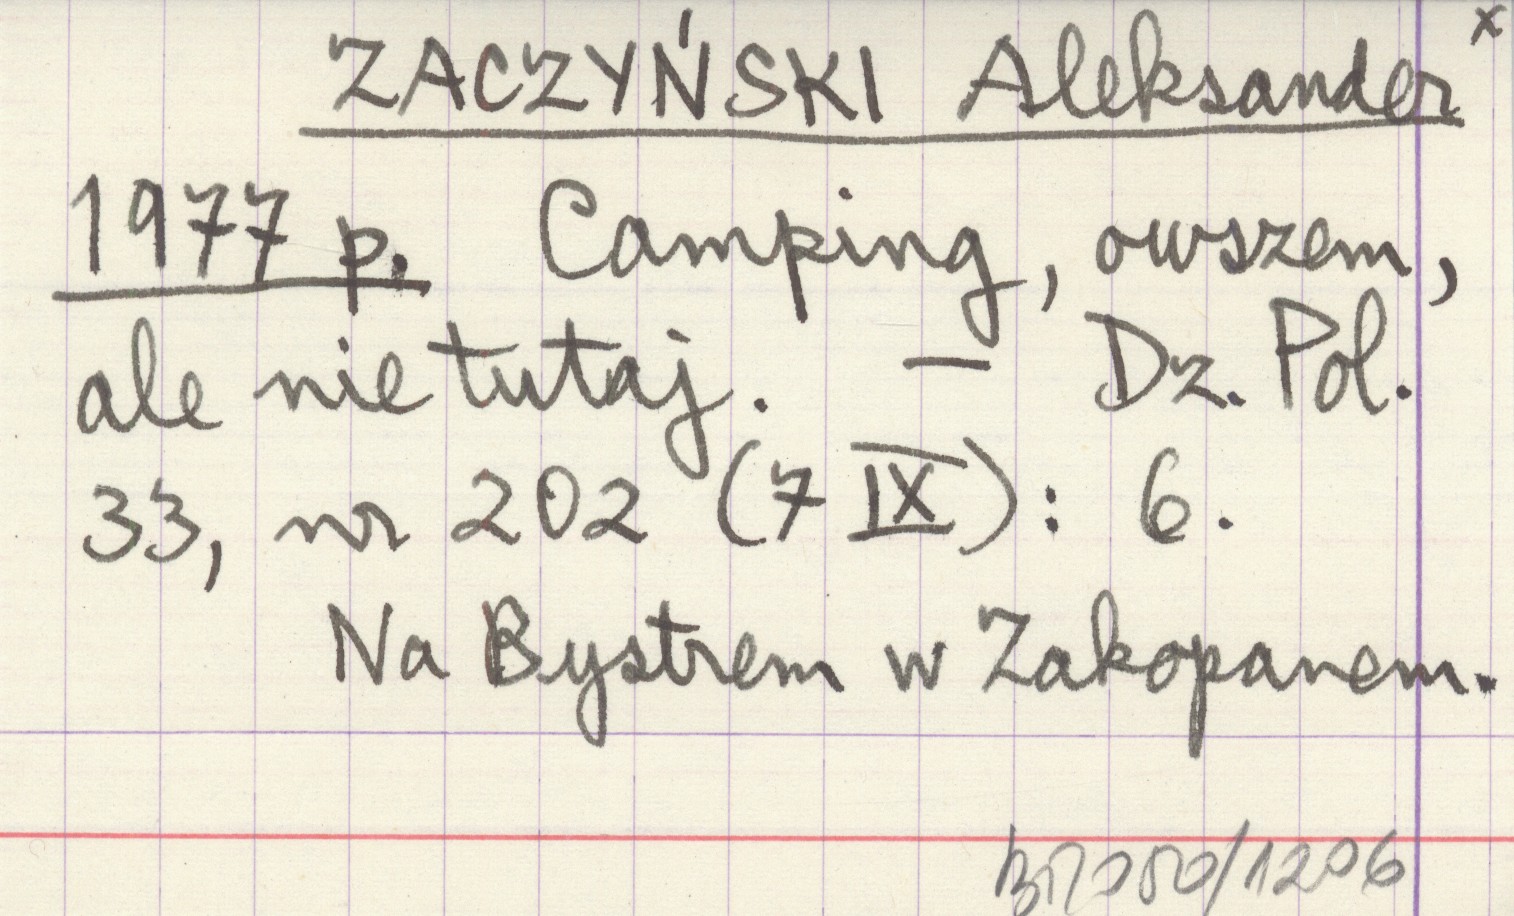 x
ZACZYŃSKI Aleksander
1977 p. Camping, owszem,
ale nie tutaj. — Dz. Pol.
33, nr 202 (7 IX): 6.
Na Bystrem w Zakopanem.